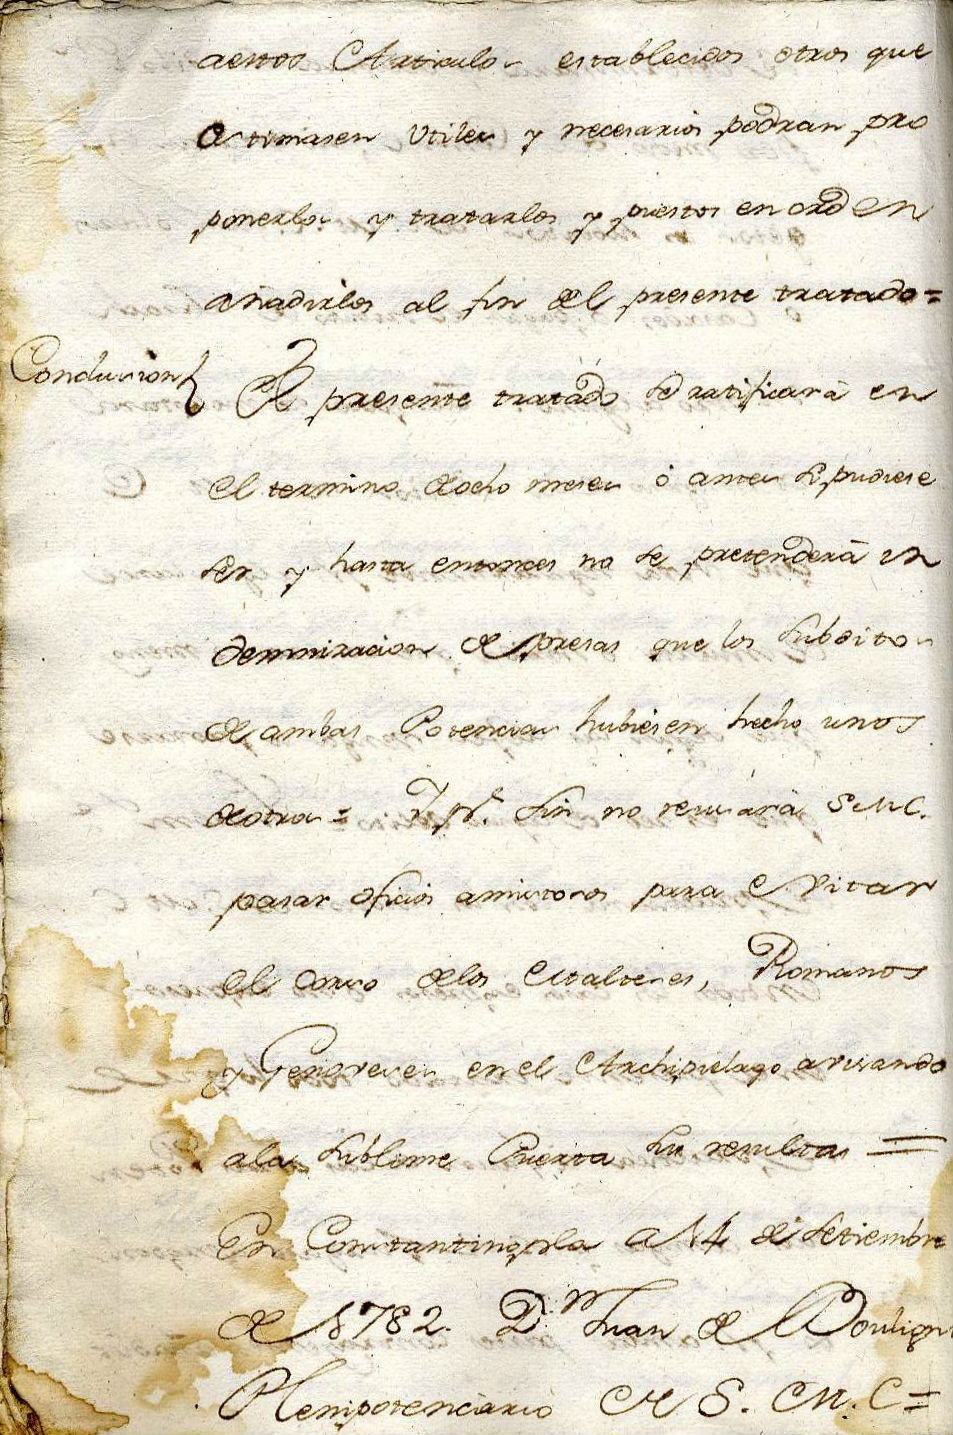 aestos Articulos establecidos otros que
estimasen Utiles y necesarios podran pro
ponerlos y tratarlos y puestos en orden
añadirlos al fin del presente tratado=
Conclusion El presente tratado se ratificarà en
el termino de ocho meses ò antes si pudiese
ser y hasta entonces no se pretenderà in
demnizacion de presas que los subditos
de ambas Potencias hubiesen hecho unos
de otros= Y pr. fin no reusarà S M C.
pasar oficios amistosos para evitar
el Corso de los Malteses, Romanos
y Genoveses en el Archipielago avisando
ala sublime Puerta sus resultas =
En Constantinopla a 14 de setiembre
de 1782. Dn. Juan de Bouligni
Plenipotenciario de S. M. C=